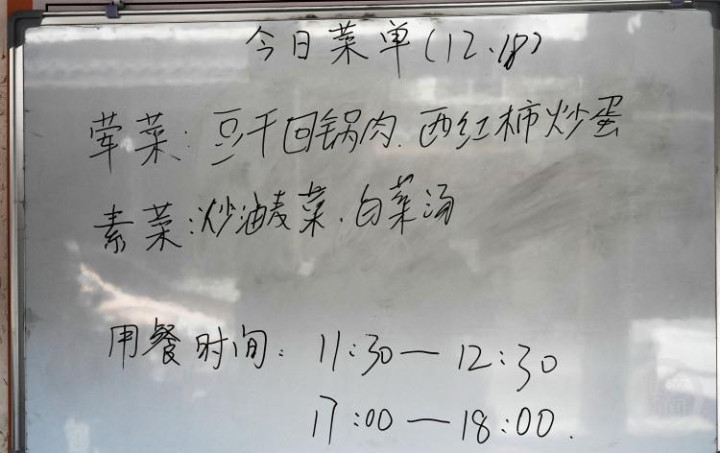 今日菜单(12.18)
荤菜:豆干回锅肉.西红柿炒蛋
素菜:炒油麦菜.白菜汤
用餐时间:11:30—12:30
17:00—18:00.